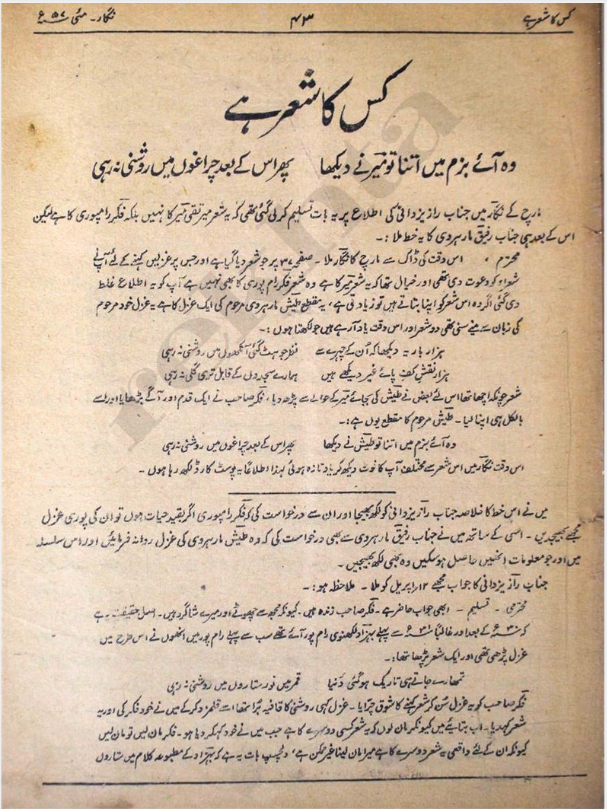 کس کا شعر ہے ۴۳ نگار۔ مئی ۵۷ء
کس کا شعر ہے
وہ آئے بزم میں اتنا تو میرؔ نے دیکھا پھر اس کے بعد چراغوں میں روشنی نہ رہی
مارچ کے نگار میں جناب رازؔ یزدانی کی اطلاع پر یہ بات تسلیم کرلی گئی تھی کہ یہ شعر میر تقی میرؔ کا نہیں بلکہ فکرؔ رامپوری کا ہے لیکن
اس کے بعد ہی جناب رفیقؔ مارہروی کا یہ خط ملا :۔
محترم ، اس وقت کی ڈاک سے مارچ کا نگار ملا۔ صفحہ ۳۷ پر جو شعر دیا گیا ہے اور جس پر غزلیں کہنے کے لئے آپ نے
شعراء کو دعوت دی تھی اور خیال تھا کہ یہ شعر میرؔ کا ہے وہ شعر فکرؔ رام پوری کا بھی نہیں ہے آپ کو یہ اطلاع غلط
دی گئی اگر وہ اس شعر کو اپنا بتاتے ہیں تو زیادتی ہے، یہ مقطع طیشؔ مارہروی مرحوم کی ایک غزل کا ہے یہ غزل خود مرحوم
کی زبان سے مینے سنی تھی دو شعر اور اس وقت یاد آرہے ہیں جو لکھتا ہوں :۔
ہزار بار یہ دیکھا کہ اُن کے چہرے سے نظر جو ہٹ گئی آنکھوں میں روشنی نہ رہی
ہزار نقشِ کفِ پائے غیر دیکھے ہیں ہمارے سجدوں کے قابل تری گلی نہ رہی
شعر چونکہ اچھا تھا اس لئے بعض نے طیشؔ کی بجائے میرؔ کے حوالے سے پڑھ دیا، فکرؔ صاحب نے ایک قدم اور آگے بڑھایا اور اسے
بالکل ہی اپنا لیا۔ طیشؔ مرحوم کا مقطع یوں ہے :۔
وہ آئے بزم میں اتنا تو طیشؔ نے دیکھا پھر اس کے بعد چراغوں میں روشنی نہ رہی
اس وقت نگار میں اس شعر سے متعلق آپ کا نوٹ دیکھ کر یاد تازہ ہوئی لہٰذا اطلاعاً یہ پوسٹ کارڈ لکھ رہا ہوں۔
میں نے اس خط کا خلاصہ جناب رازؔ یزدانی کو لکھ بھیجا اور ان سے درخواست کی کہ فکرؔ رامپوری اگر بقید حیات ہوں تو ان کی پوری غزل
مجھے بھیجدیں۔ اسی کے ساتھ میں نے جناب رفیقؔ مارہروی سے بھی درخواست کی کہ وہ طیشؔ مارہروی کی غزل روانہ فرمائیں اور اس سلسلہ
میں اور جو معلومات انھیں حاصل ہوسکیں وہ بھی لکھ بھیجیں۔
جناب رازؔ یزدانی کا جواب مجھے ۱۲ اپریل کو ملا۔ ملاحظہ ہو :۔
محترمی۔ تسلیم۔ ابھی جواب حاضر ہے۔ فکرؔ صاحب زندہ ہیں۔ کیونکہ مجھ سے چھوٹے اور میرے شاگرد ہیں۔ اصل حقیقت یہ ہے
کہ ۳۰ء کے بعد اور غالباً سے پہلے بہزادؔ لکھنوی رام پور آئے تھے سب سے پہلے رام پور میں انھوں نے اس طرح میں
غزل پڑھی تھی اور ایک شعر پڑھا تھا :۔
تمھارے جاتے ہی تاریک ہوگئی دُنیا قمر میں نور ستاروں میں روشنی نہ رہی
فکرؔ صاحب کو یہ غزل سن کر شعر کہنے کا شوق چرّایا۔ غزل کہی روشنی کا قافیہ بُرا تھا اسے قلمزد کرکے میں نے خود فکر کی اور یہ
شعر کہدیا۔ اب بتائیے میں کیونکر مان لوں کہ یہ شعر کسی دوسرے کا ہے جب میں نے خود کہہ کر دیا ہو۔ فکرؔ مان لیں تو مان لیں
کیونکہ ان کے لئے واقعی یہ شعر دوسرے کا ہے میرا مان لینا غیر ممکن ہے، دلچسپ بات یہ ہے کہ بہزادؔ کے مطبوعہ کلام میں ستاروں